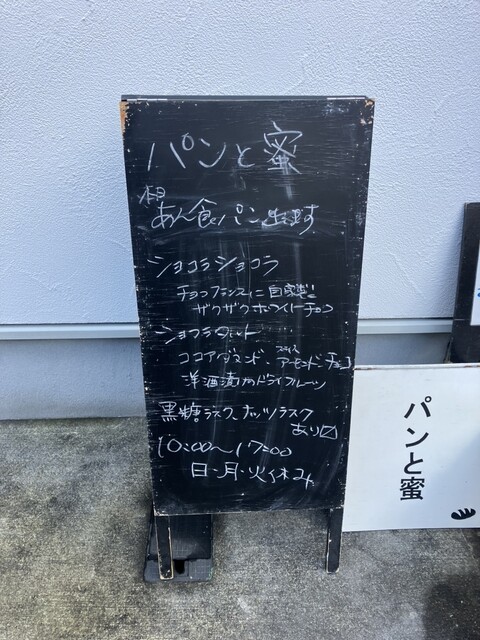 パンと蜜
本日
あん食パン出ます
ショコラショコラ
チョコフランスに自家製
ザクザクホワイトチョコ
ショコラタルト
ココアダマンド スライスアーモンド、チョコ
洋酒漬けのドライフルーツ
黒糖ラスク、ナッツラスク
あり〼
10:00〜17:00
日・月・火休み
パンと蜜